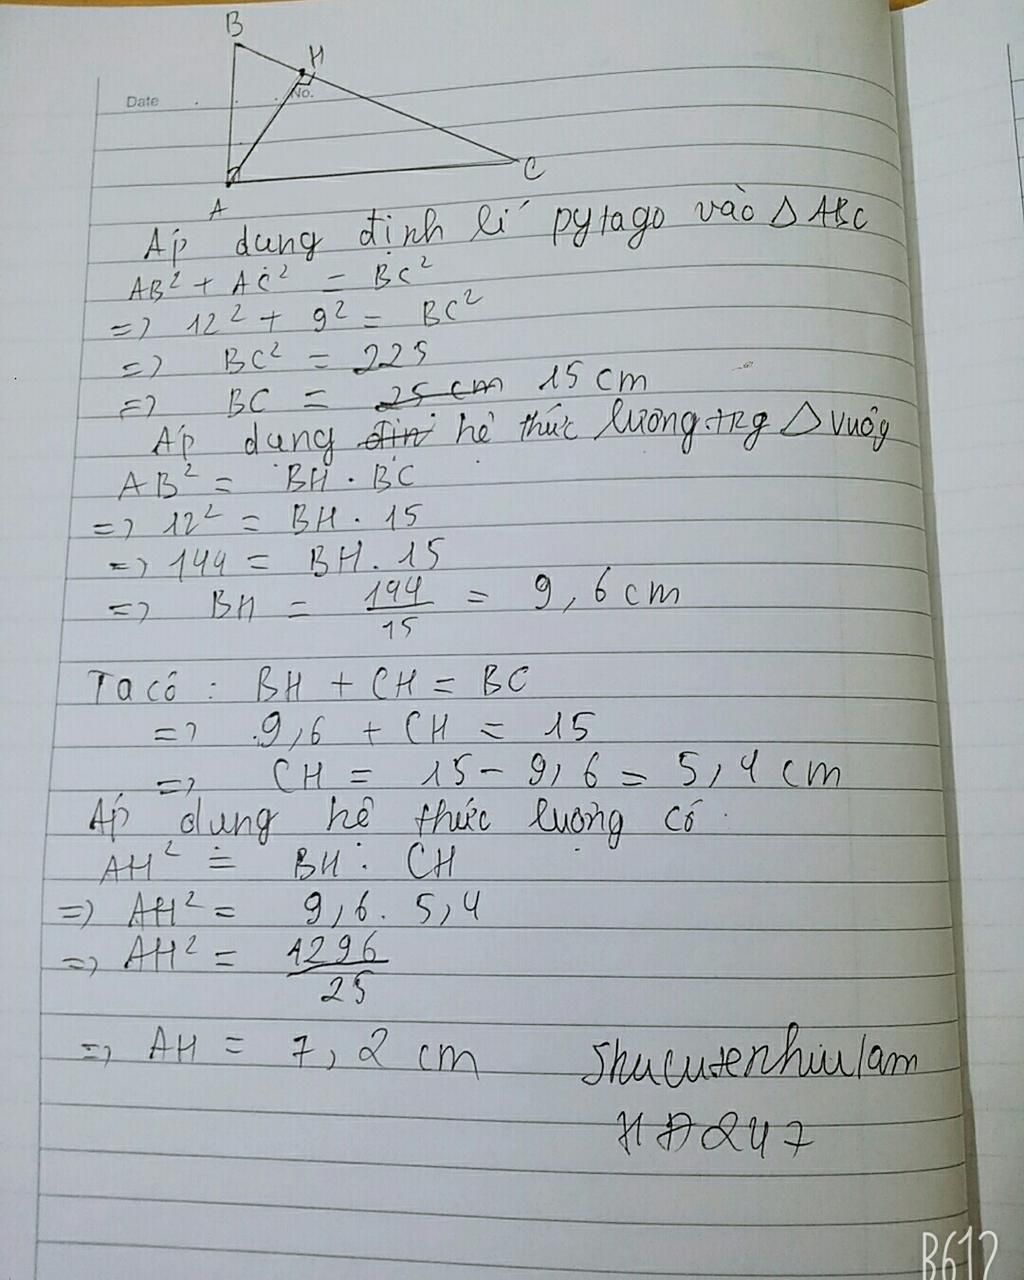 B
H
Date
No.
C
A
Áp dụng định lí pytago vào △ ABC
AB² + AC² = BC²
=> 12² + 9² = BC²
=> BC² = 225
=> BC = 25 cm 15 cm
Áp dụng địn hệ thức lượng trg △ vuôg
AB² = BH . BC
=> 12² = BH . 15
=> 144 = BH . 15
=> BH = 144/15 = 9,6 cm
Ta có : BH + CH = BC
=> 9,6 + CH = 15
=> CH = 15 - 9,6 = 5,4 cm
Áp dụng hệ thức lượng có
AH² = BH . CH
=> AH² = 9,6 . 5,4
=> AH² = 1296/25
=> AH = 7,2 cm
HĐ247
B612